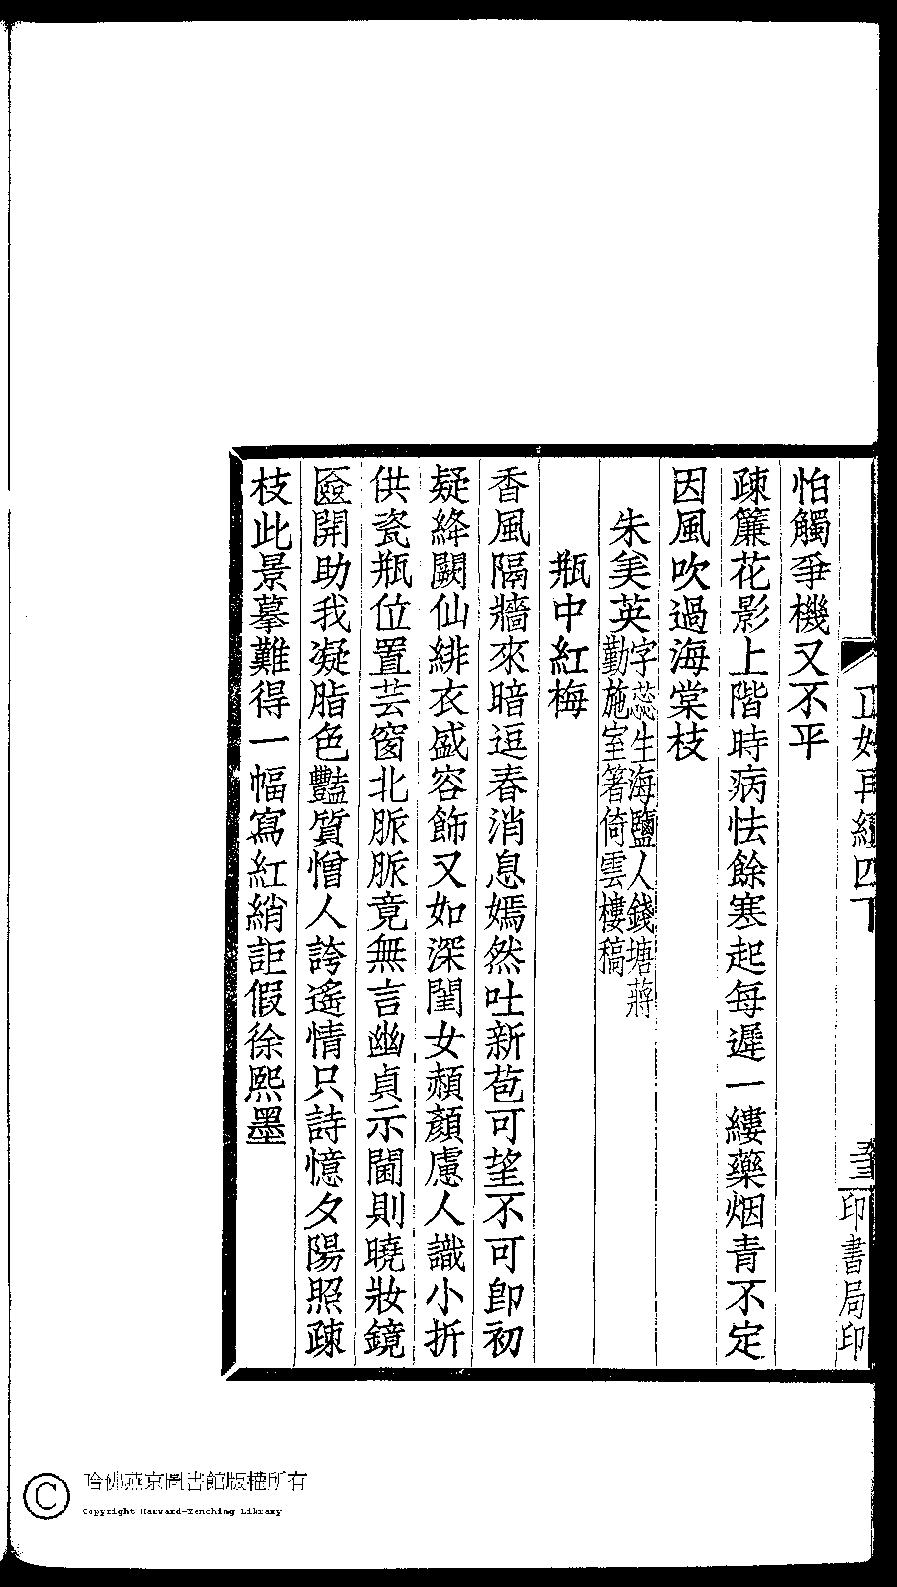 怕觸爭機又不平
疎簾花影上階時病怯餘寒起每遲一縷藥烟青不定
因風吹過海棠枝
朱美英字蕊生海鹽人錢塘蔣
勤施室箸倚雲樓稿
瓶中紅梅
香風隔牆來暗逗春消息嫣然吐新苞可望不可卽初
疑絳闕仙緋衣盛容飾又如深閨女赬顏慮人識小折
供瓷瓶位置芸窗北脈脈竟無言幽貞示閫則曉妝鏡
匳開助我凝脂色豔質憎人誇遙情只詩憶夕陽照疎
枝此景摹難得一幅寫紅綃詎假徐熙墨
再續四下
印書局印
哈佛燕京圖書館版權所有
Copyright Harvard-Yenching Library